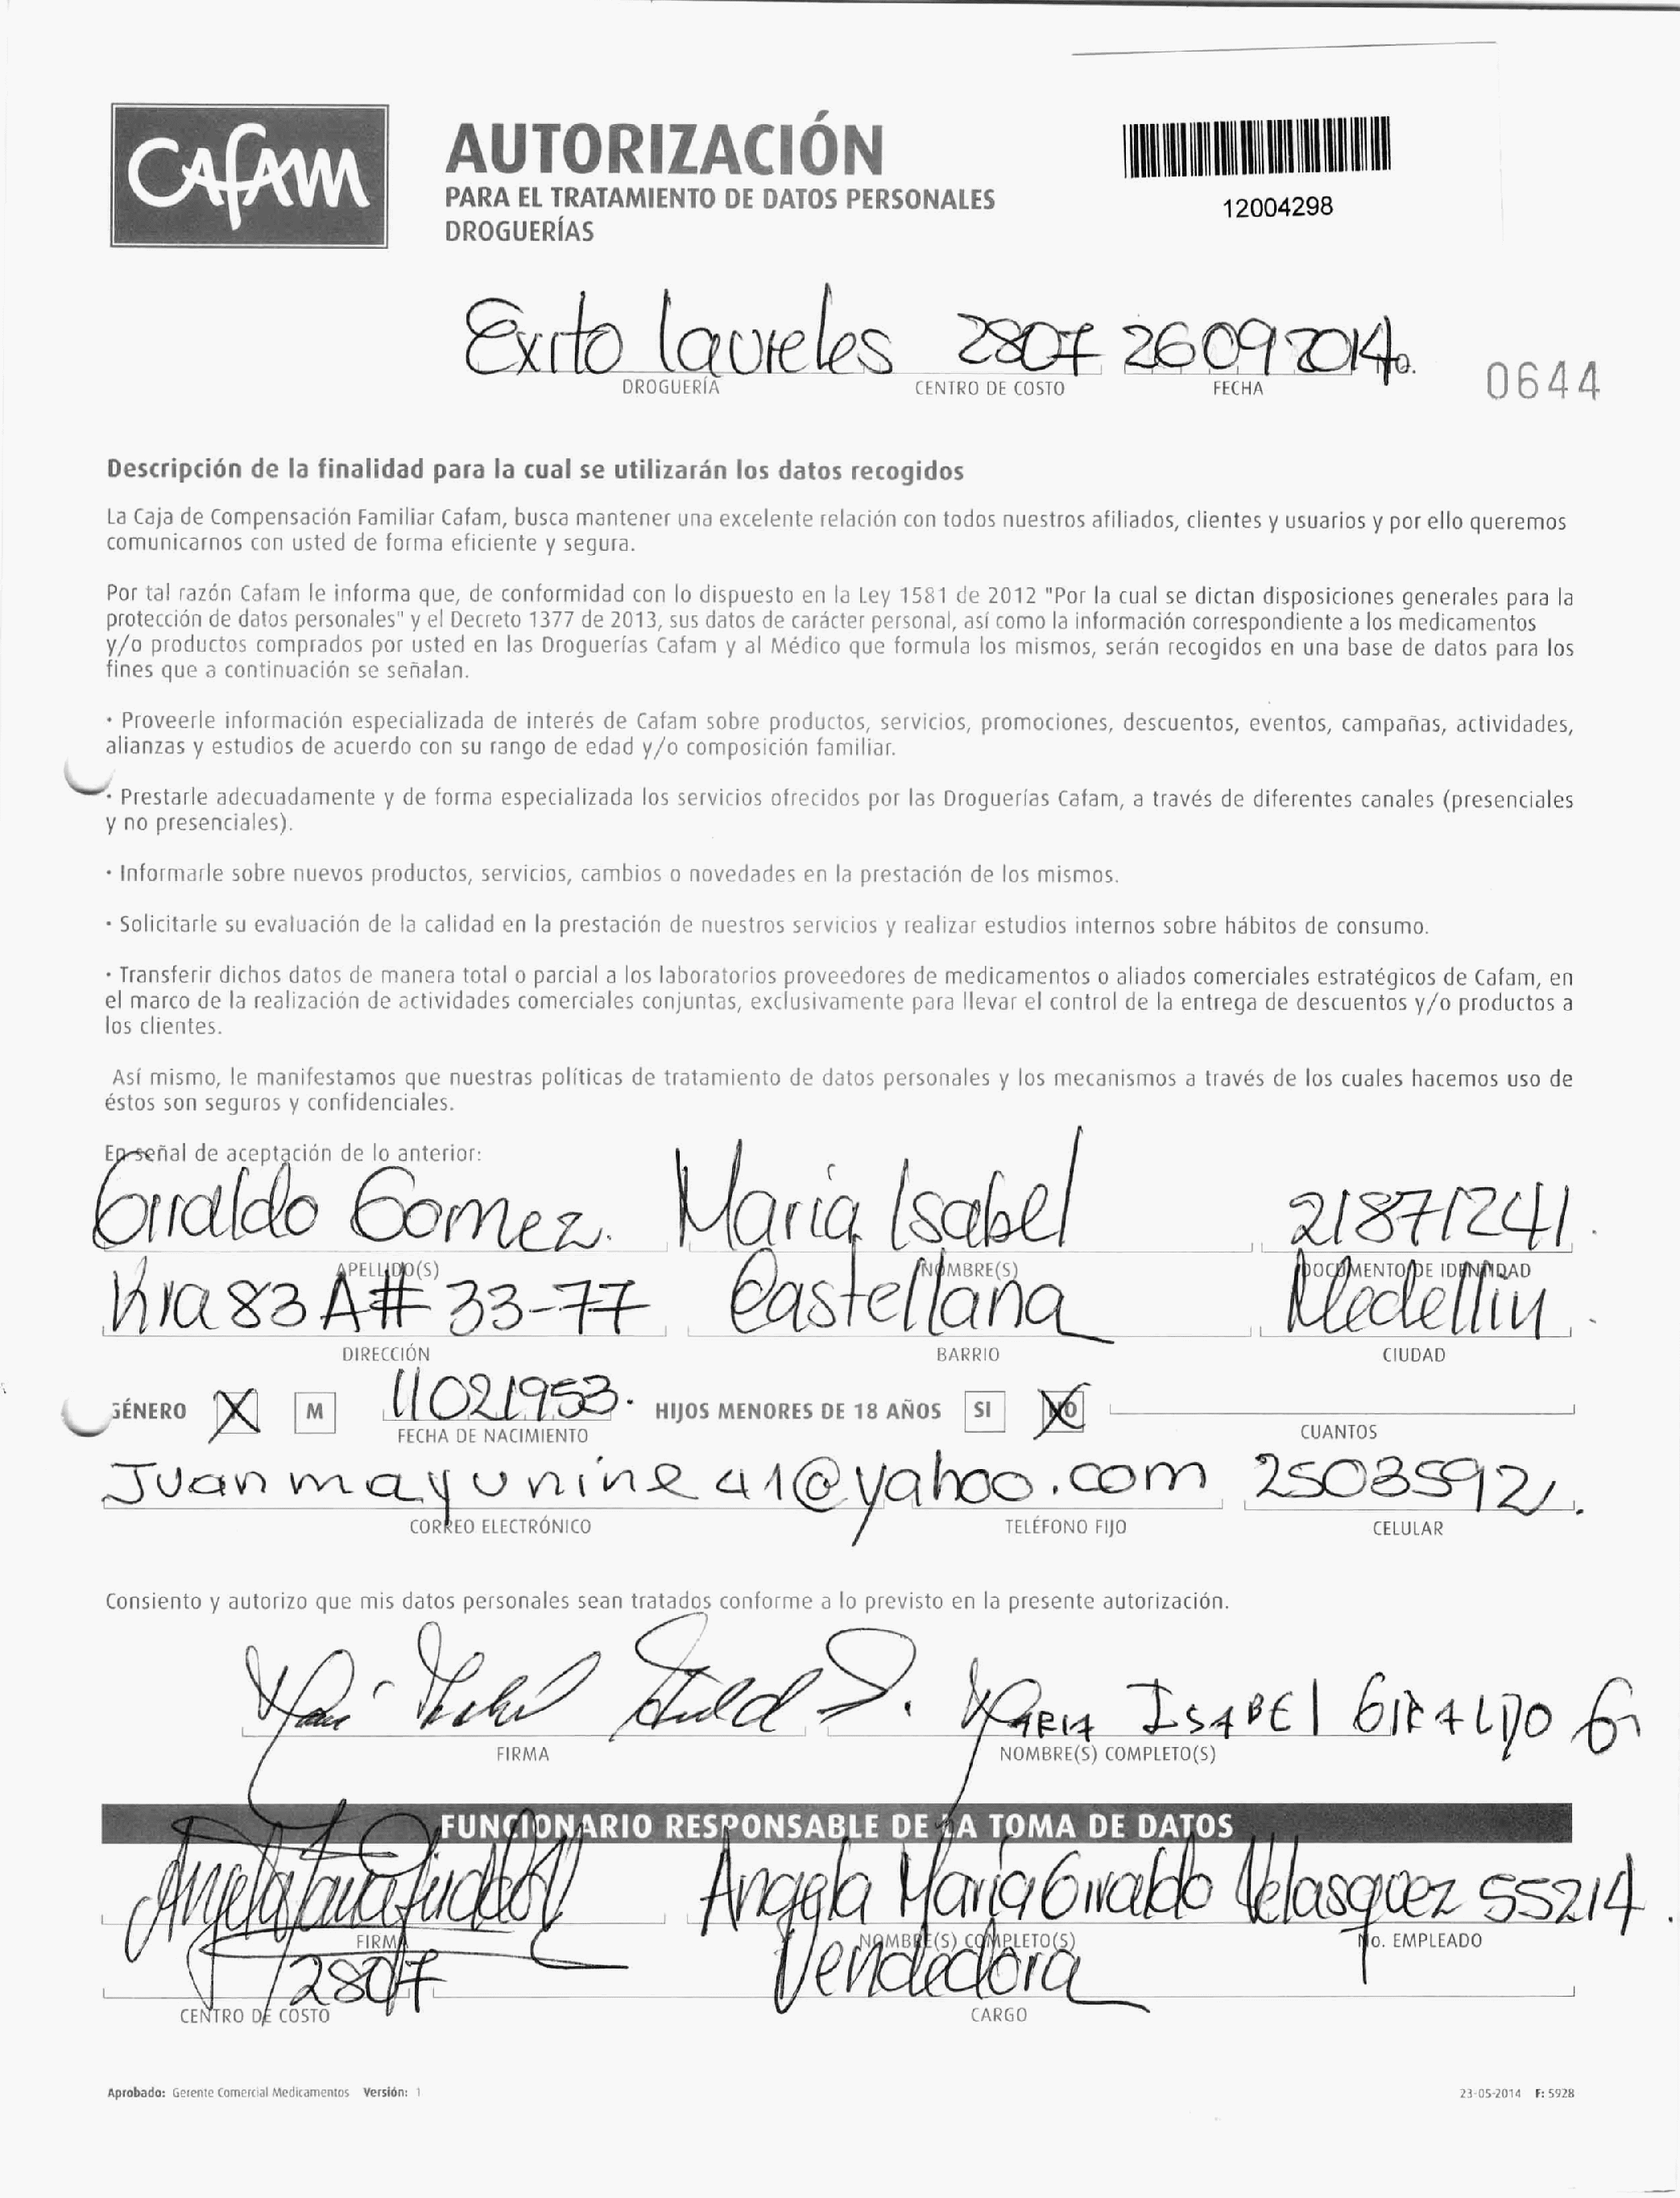 CAfAM
AUTORIZACIÓN
PARA EL TRATAMIENTO DE DATOS PERSONALES
DROGUERÍAS
12004298
Exito laureles 2807 26092014
DROGUERÍA CENTRO DE COSTO FECHA
0644
Descripción de la finalidad para la cual se utilizarán los datos recogidos
La Caja de Compensación Familiar Cafam, busca mantener una excelente relación con todos nuestros afiliados, clientes y usuarios y por ello queremos
comunicarnos con usted de forma eficiente y segura.
Por tal razón Cafam le informa que, de conformidad con lo dispuesto en la Ley 1581 de 2012 "Por la cual se dictan disposiciones generales para la
protección de datos personales" y el Decreto 1377 de 2013, sus datos de carácter personal, así como la información correspondiente a los medicamentos
y/o productos comprados por usted en las Droguerías Cafam y al Médico que formula los mismos, serán recogidos en una base de datos para los
fines que a continuación se señalan.
· Proveerle información especializada de interés de Cafam sobre productos, servicios, promociones, descuentos, eventos, campañas, actividades,
alianzas y estudios de acuerdo con su rango de edad y/o composición familiar.
· Prestarle adecuadamente y de forma especializada los servicios ofrecidos por las Droguerías Cafam, a través de diferentes canales (presenciales
y no presenciales).
· Informarle sobre nuevos productos, servicios, cambios o novedades en la prestación de los mismos.
· Solicitarle su evaluación de la calidad en la prestación de nuestros servicios y realizar estudios internos sobre hábitos de consumo.
· Transferir dichos datos de manera total o parcial a los laboratorios proveedores de medicamentos o aliados comerciales estratégicos de Cafam, en
el marco de la realización de actividades comerciales conjuntas, exclusivamente para llevar el control de la entrega de descuentos y/o productos a
los clientes.
Así mismo, le manifestamos que nuestras políticas de tratamiento de datos personales y los mecanismos a través de los cuales hacemos uso de
éstos son seguros y confidenciales.
En señal de aceptación de lo anterior:
Giraldo Gomez. Maria Isabel 21871241.
APELLIDO(S) NOMBRE(S) DOCUMENTO DE IDENTIDAD
Kra 83 A # 33-77 Castellana Medellin
DIRECCIÓN BARRIO CIUDAD
GÉNERO X M 11021953. HIJOS MENORES DE 18 AÑOS SI NO
FECHA DE NACIMIENTO CUANTOS
Juanmayunine41@yahoo.com 2503592
CORREO ELECTRÓNICO TELÉFONO FIJO CELULAR
Consiento y autorizo que mis datos personales sean tratados conforme a lo previsto en la presente autorización.
MARIA ISABEl GIRALDO G
FIRMA NOMBRE(S) COMPLETO(S)
FUNCIONARIO RESPONSABLE DE LA TOMA DE DATOS
Angela Maria Giraldo Velasquez 55214.
FIRMA NOMBRE(S) COMPLETO(S) No. EMPLEADO
2807 Vendedora
CENTRO DE COSTO CARGO
Aprobado: Gerente Comercial Medicamentos Versión: 1
23-05-2014 F: 5928